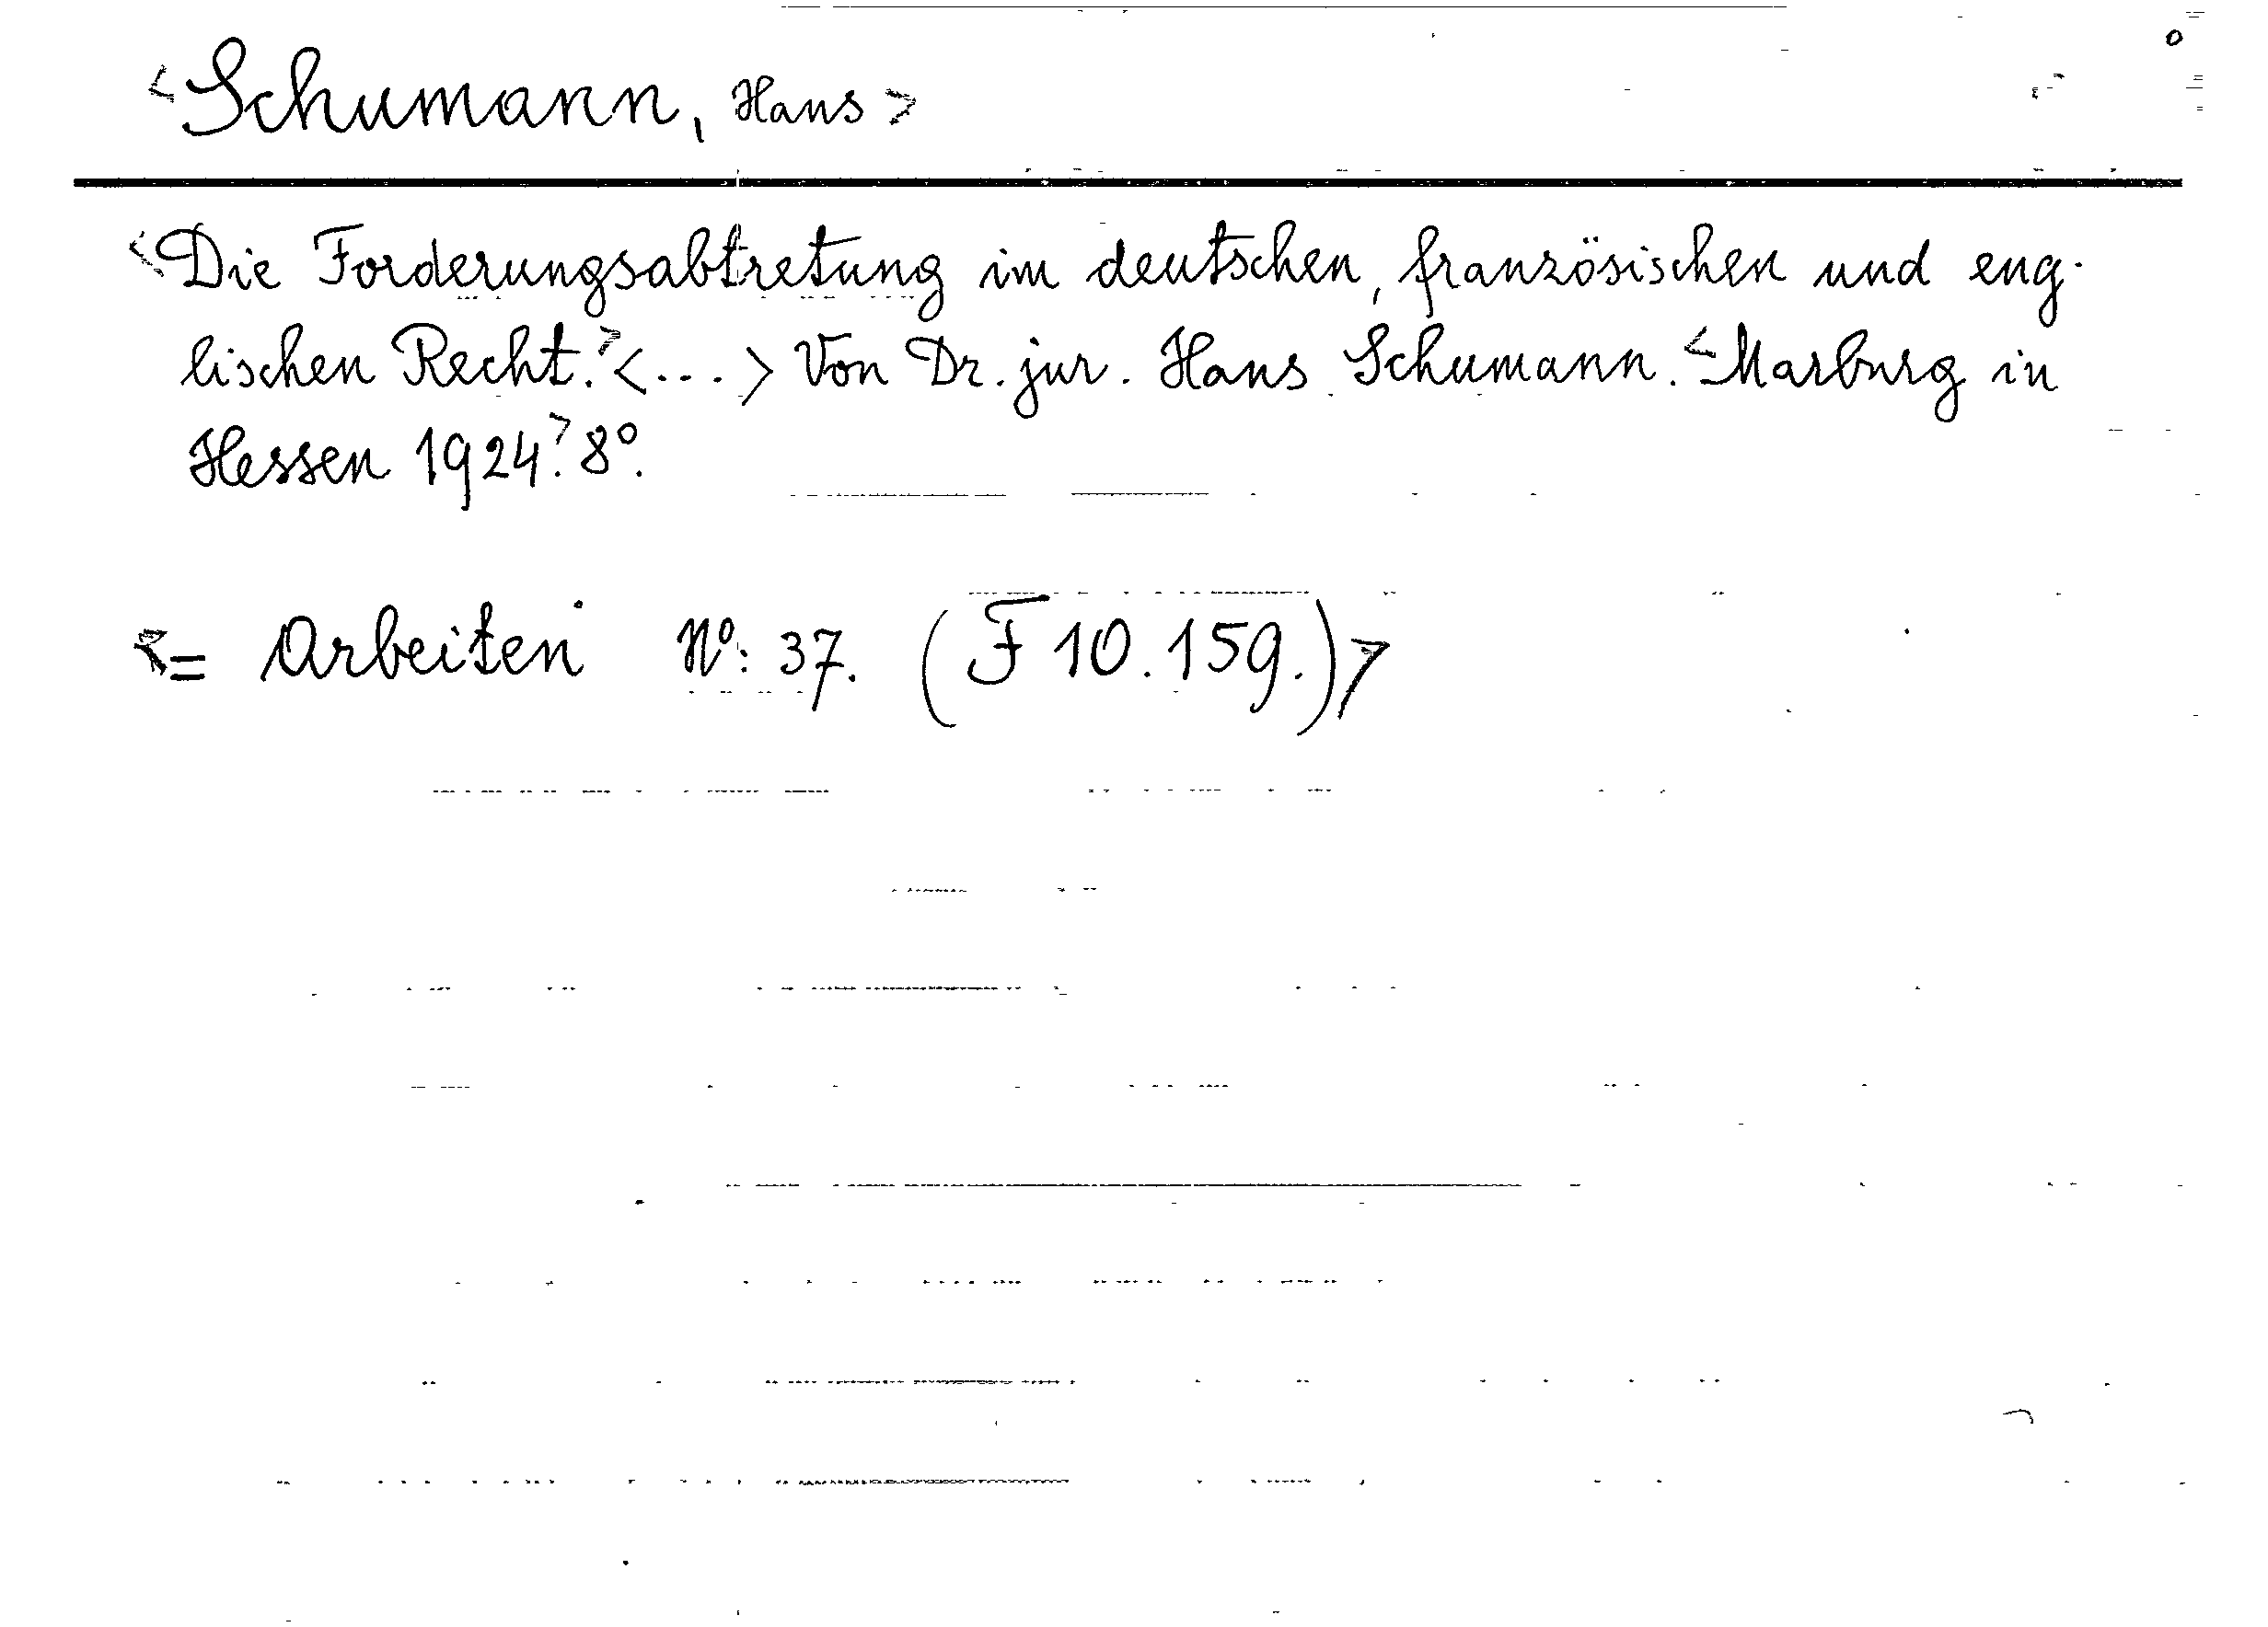 <Schumann, Hans>
<Die Forderungsabtretung im deutschen, französischen und eng-
lischen Recht.> <...> Von Dr. jur. Hans Schumann. <Marburg in
Hessen 1924.> 8º.
<= Arbeiten Nº: 37. (F 10.159.)>